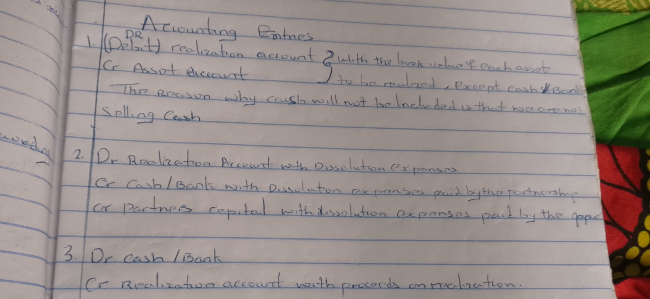 Accounting Entries
DR
1. (Debit) realization account } with the book value of each asset
Cr Asset Account } to be realized, except cash & Bank
The reason why cash will not be included is that we are not
Selling Cash
2. Dr Realization Account with Dissolution expenses
Cr Cash/Bank with Dissolution expenses paid by the partnership
Cr Partners capital with dissolution expenses paid by the
3 Dr Cash/Bank
Cr Realization account with proceeds on realization.